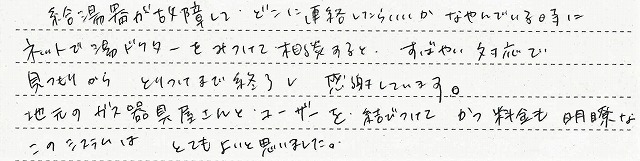 給湯器が故障して、どこに連絡したらいいか なやんでいる時に
ネットで湯ドクターをみつけて相談すると、すばやい対応で
見つもりから とりつけまで終了し 感謝しています。
地元のガス器具屋さんと、ユーザーを、結びつけて かつ料金も明瞭な
このシステムは とてもよいと思いました。